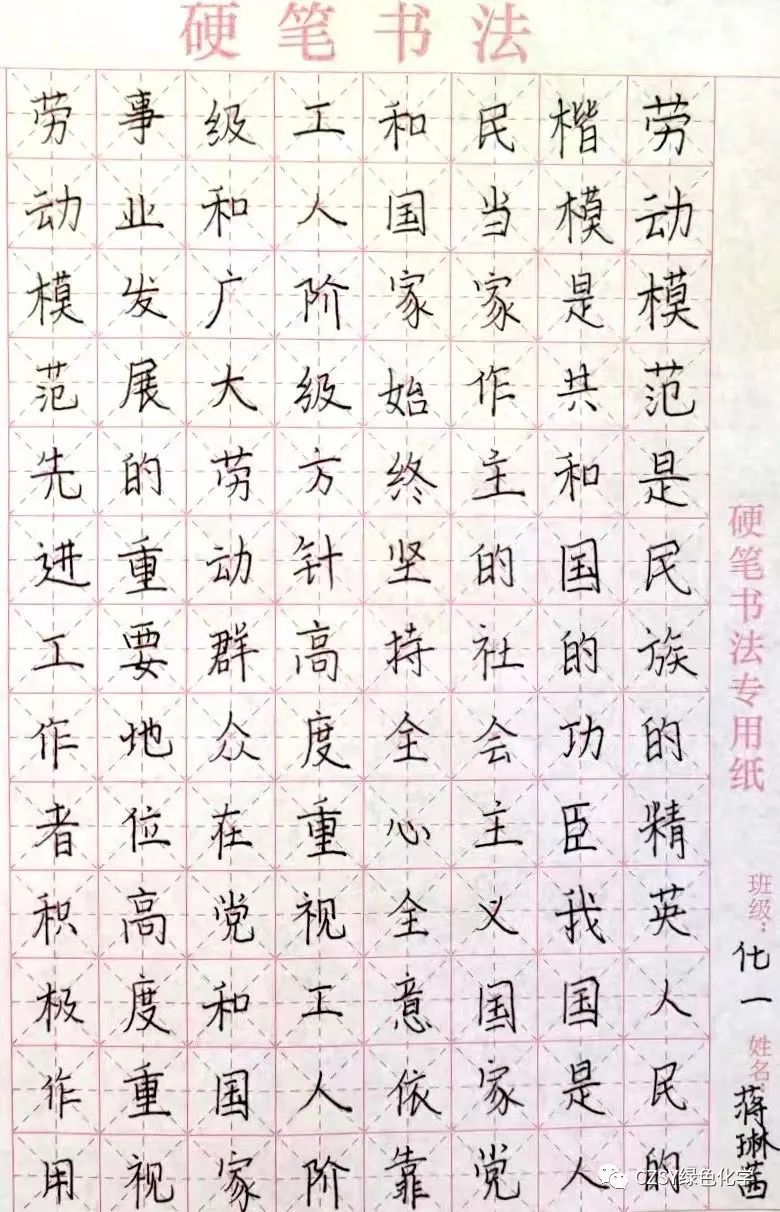 硬笔书法
劳动模范是民族的精英人民的
楷模是共和国的功臣我国是人
民当家作主的社会主义国家党
和国家始终坚持全心全意依靠
工人阶级方针高度重视工人阶
级和广大劳动群众在党和国家
事业发展的重要地位高度重视
劳动模范先进工作者积极作用
硬笔书法专用纸
班级：化一
姓名：蒋琳茜
CZSY绿色化学